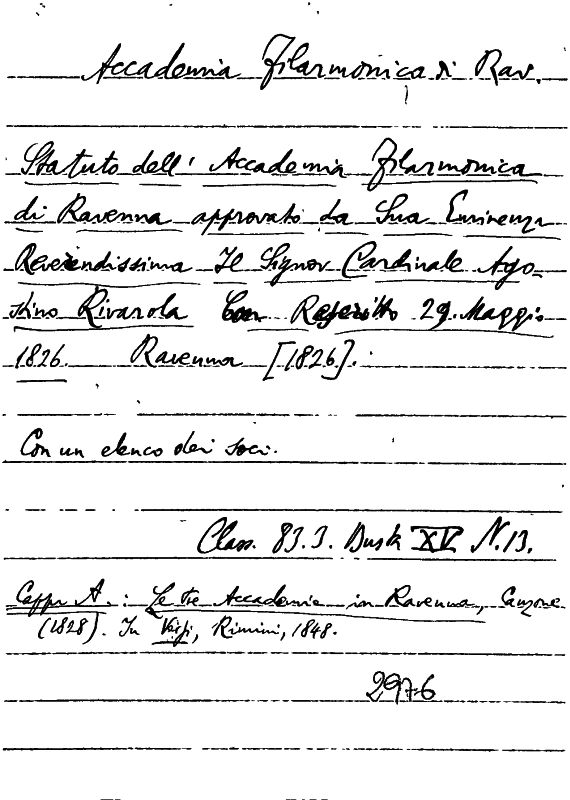 Accademia Filarmonica di Rav.
Statuto dell' Accademia Filarmonica
di Ravenna approvato da Sua Eminenza
Reverendissima Il Signor Cardinale Ago-
stino Rivarola Con Rescritto 29. Maggio
1826. Ravenna [1826].
Con un elenco dei soci.
Class. 83.3. Busta XV N. 13.
Cappi A. : Le tre Accademie in Ravenna, Canzone
(1828). In Versi, Rimini, 1848.
2976